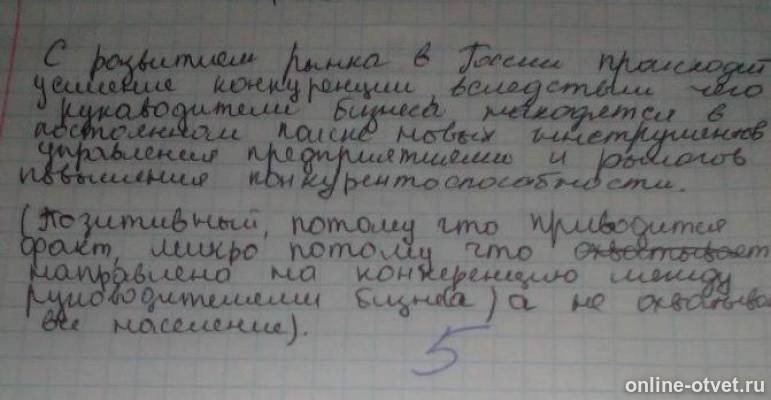 С развитием рынка в России происходит
усиление конкуренции, вследствии чего
рукаводители бизнеса находятся в
постоянном поиске новых инструментов
управления предприятиями и рычагов
повышения конкурентоспособности.
(Позитивный, потому что приводится
факт, микро потому что охватывает
направлено на конкеренцию между
руководителеми бизнеса) а не охватыва
все население).
5
online-otvet.ru